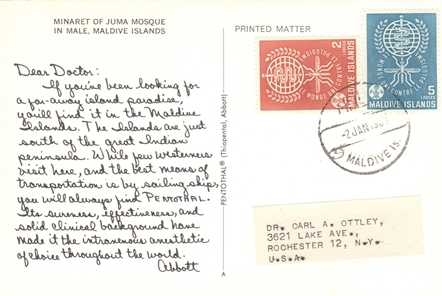 MINARET OF JUMA MOSQUE
IN MALE, MALDIVE ISLANDS
Dear Doctor:
If you've been looking for
a far-away island paradise,
you'll find it in the Maldive
Islands. The Islands are just
south of the great Indian
peninsula. While few westerners
visit here, and the best means of
transportation is by sailing ship,
you will always find PENTOTHAL.
Its sureness, effectiveness, and
solid clinical background have
made it the intravenous anesthetic
of choice throughout the world.
Abbott
PENTOTHAL® (Thiopental, Abbott)
A
PRINTED MATTER
2 LAREES
MALDIVE ISLANDS
LE MONDE UNI CONTRE LE PALUDISME
5 LAREES
MALDIVE ISLANDS
2 JAN 196
MALDIVE IS.
DR. CARL A. OTTLEY,
3621 LAKE AVE.,
ROCHESTER 12, N.Y.
U.S.A.